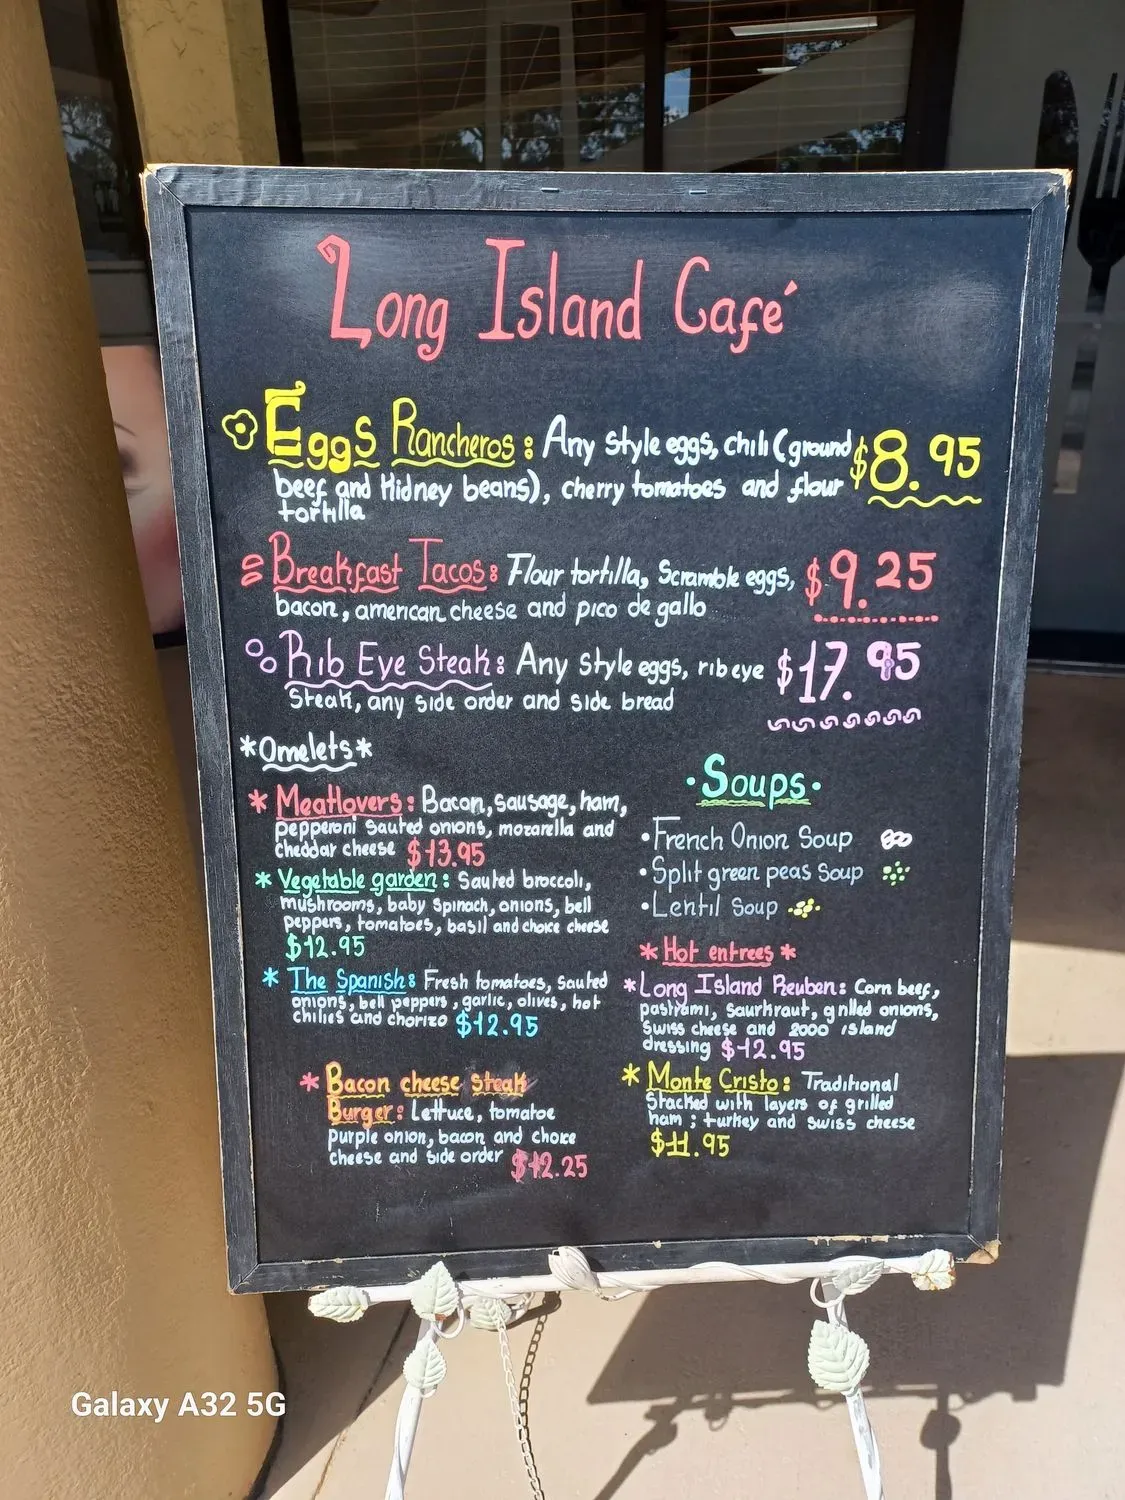 Long Island Café
Eggs Rancheros: Any style eggs, chili (ground $8.95
beef and kidney beans), cherry tomatoes and flour
tortilla
Breakfast Tacos: Flour tortilla, Scramble eggs, $9.25
bacon, american cheese and pico de gallo
Rib Eye Steak: Any style eggs, rib eye $17.95
steak, any side order and side bread
*Omelets*
* Meatlovers: Bacon, sausage, ham,
pepperoni sauted onions, mozarella and
cheddar cheese $13.95
* Vegetable garden: Sauted broccoli,
mushrooms, baby spinach, onions, bell
peppers, tomatoes, basil and choice cheese
$12.95
* The Spanish: Fresh tomatoes, sauted
onions, bell peppers, garlic, olives, hot
chilies and chorizo $12.95
* Bacon cheese steak
Burger: Lettuce, tomatoe
purple onion, bacon and choice
cheese and side order $12.25
• Soups •
• French Onion Soup
• Split green peas Soup
• Lentil Soup
* Hot entrees *
* Long Island Reuben: Corn beef,
pastrami, saurhraut, grilled onions,
swiss cheese and 2000 island
dressing $12.95
* Monte Cristo: Traditional
Stacked with layers of grilled
ham; turkey and swiss cheese
$11.95
Galaxy A32 5G